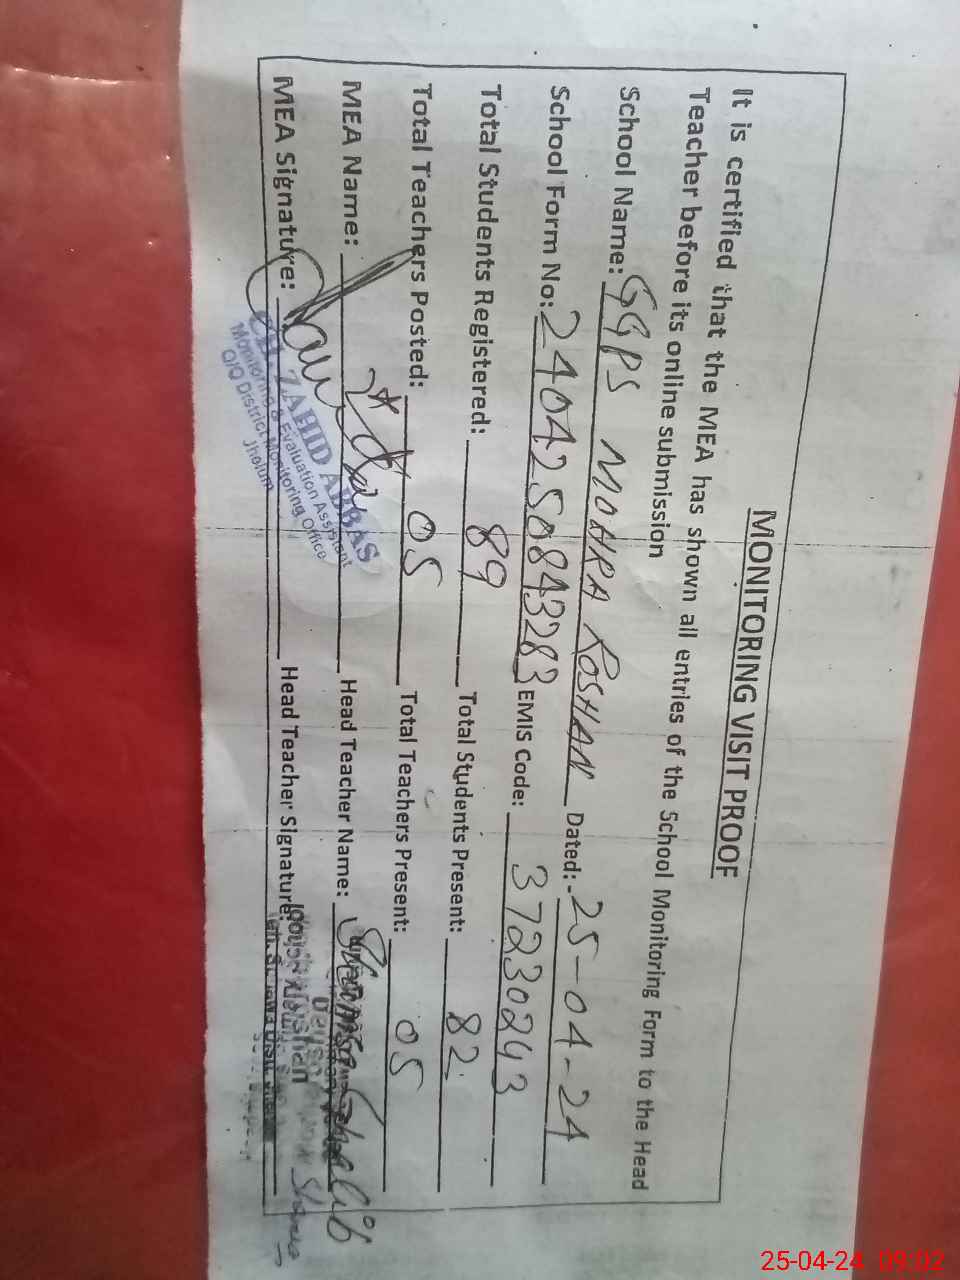 MONITORING VISIT PROOF
It is certified that the MEA has shown all entries of the School Monitoring Form to the Head
Teacher before its online submission
School Name: GGPS MOHRA ROSHAN Dated: 25-04-24
School Form No: 2404250843283 EMIS Code: 37230243
Total Students Registered: 89 Total Students Present: 82
Total Teachers Posted: 05 Total Teachers Present: 05
MEA Name: Head Teacher Name:
MEA Signature: Head Teacher Signature:
CH. ZAHID ABBAS
Monitoring & Evaluation Assistant
O/O District Monitoring Office
Jhelum
25-04-24 09:02